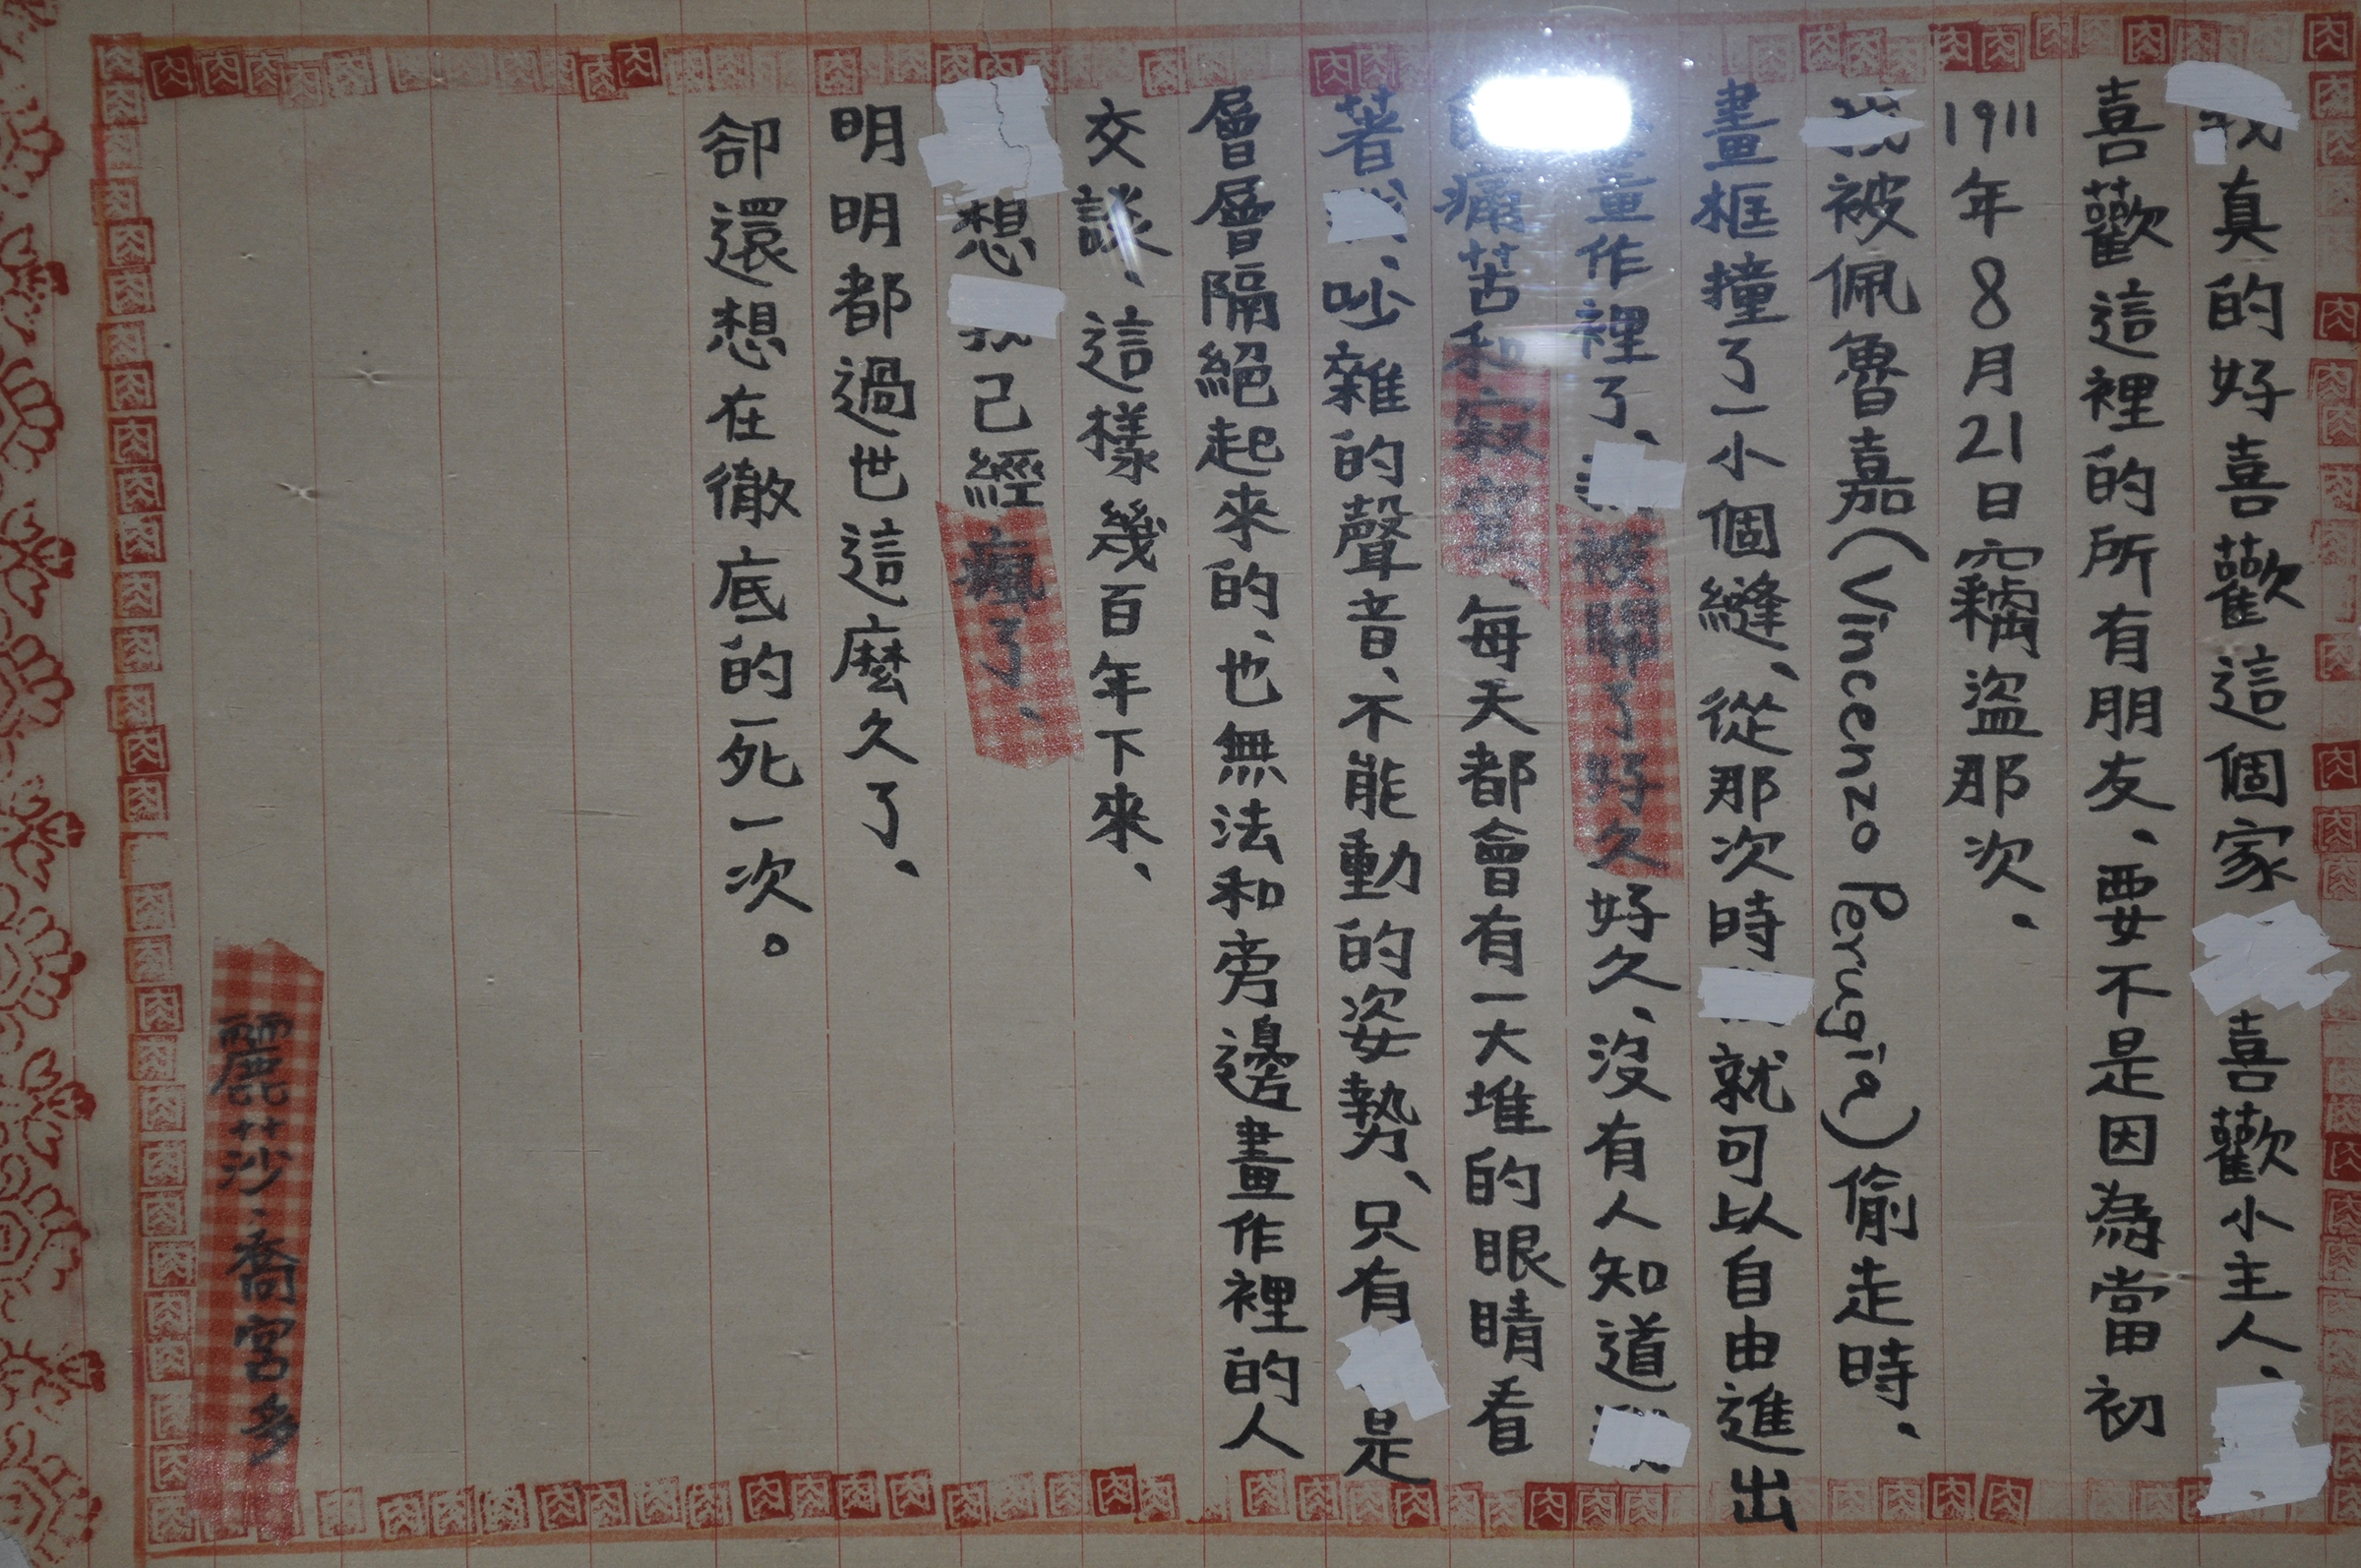 我真的好喜歡這個家 喜歡小主人、
喜歡這裡的所有朋友、要不是因為當初
1911年8月21日竊盜那次。
我被佩魯嘉(Vincenzo Perugia)偷走時、
畫框撞了一小個縫、從那次時 就可以自由進出
畫作裡了、 被關了好久好久、沒有人知道
痛苦和寂寞、每天都會有一大堆的眼睛看
著 、吵雜的聲音、不能動的姿勢、只有 是
層層隔絕起來的、也無法和旁邊畫作裡的人
交談、這樣幾百年下來、
想 我已經瘋了、
明明都過世這麼久了、
卻還想在徹底的死一次。
麗莎·喬宮多